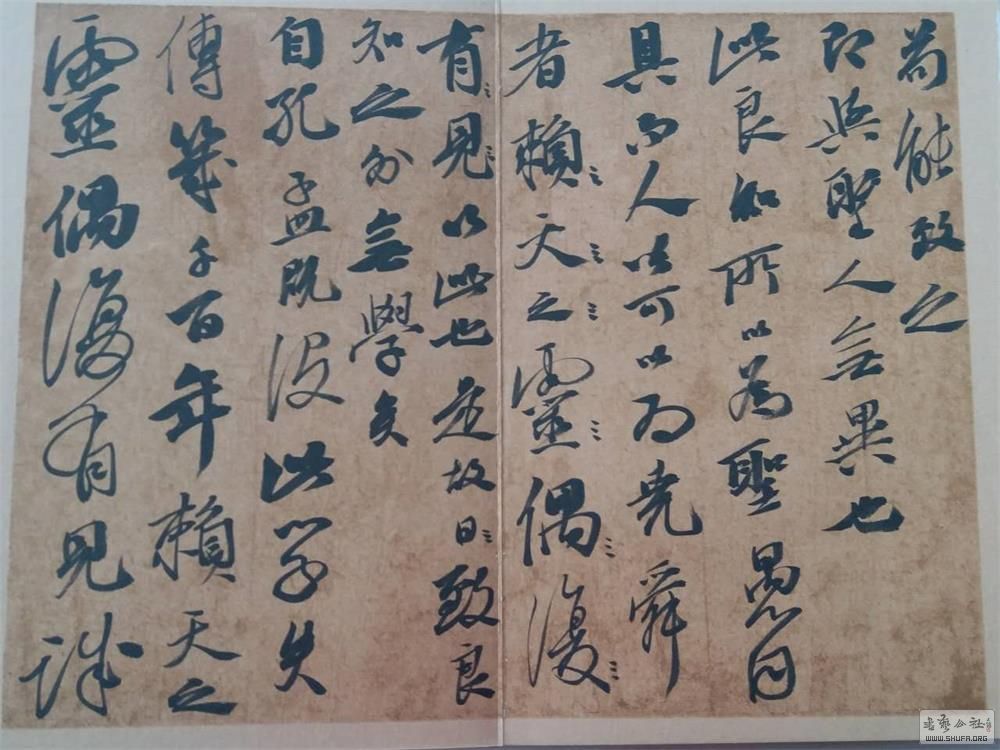 苟能致之
即與聖人無異也
此良知所以為聖愚同
具而人皆可以為堯舜
者賴天之靈偶復
有見以此也是故曰致良
知之外無學矣
自孔孟既沒此學失
傳幾千百年賴天之
靈偶復有見誠
WWW.SHUFA.ORG